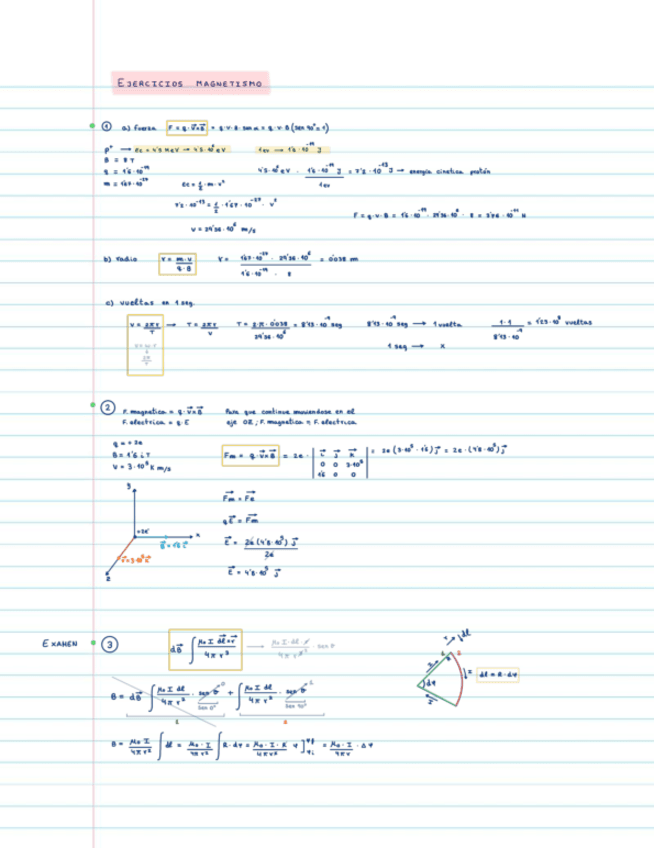 EJERCICIOS MAGNETISMO
① a) fuerza F = q · v⃗ × B⃗ = q · v · B · sen α = q · v · B (sen 90° = 1)
p⁺ → Ec = 4'5 MeV → 4'5 · 10⁶ eV 1 ev → 1'6 · 10⁻¹⁹ J
B = 8 T
q = 1'6 · 10⁻¹⁹ 4'5 · 10⁶ eV · 1'6 · 10⁻¹⁹ J / 1 ev = 7'2 · 10⁻¹³ J → energía cinética protón
m = 1'67 · 10⁻²⁷ Ec = 1/2 · m · v²
7'2 · 10⁻¹³ = 1/2 · 1'67 · 10⁻²⁷ · v²
F = q · v · B = 1'6 · 10⁻¹⁹ · 29'36 · 10⁶ · 8 = 3'76 · 10⁻¹¹ N
v = 29'36 · 10⁶ m/s
b) radio r = m · v / q · B r = 1'67 · 10⁻²⁷ · 29'36 · 10⁶ / 1'6 · 10⁻¹⁹ · 8 = 0'038 m
c) vueltas en 1 seg.
v = 2πr / T → T = 2πr / v T = 2 · π · 0'038 / 29'36 · 10⁶ = 8'13 · 10⁻⁹ seg 8'13 · 10⁻⁹ seg → 1 vuelta 1 · 1 / 8'13 · 10⁻⁹ = 1'23 · 10⁸ vueltas
1 seg → x
② F. magnética = q · v⃗ × B⃗ Para que continue moviendose en el
F. electrica = q · E eje OZ ; F. magnetica = F. electrica
q = +2e
B = 1'6 i T Fm = q · v⃗ × B⃗ = 2e · | i⃗ j⃗ k⃗ | = 2e (3 · 10⁵ · 1'6) j⃗ = 2e · (4'8 · 10⁵) j⃗
v = 3 · 10⁵ k m/s 0 0 3·10⁵
1'6 0 0
y
F⃗m = F⃗e
qE⃗ = F⃗m
+2e x
B = 1'6 i⃗
E⃗ = 2e (4'8 · 10⁵) j⃗ / 2e
z
E⃗ = 4'8 · 10⁵ j⃗
EXAMEN ③ dB⃗ ∫ μ₀ I dl⃗ × r⃗ / 4π r³
dl = R · dφ
B = dB⃗ ∫ μ₀ I dl / 4π r² · sen θ + ∫ μ₀ I dl / 4π r² · sen θ
sen 0° sen 90°
1 2
B = μ₀ I / 4π r² ∫ dl = μ₀ · I / 4π r² ∫ R · dφ = μ₀ · I · R / 4π r² φ ]φf φi = μ₀ · I / 4π r · Δφ